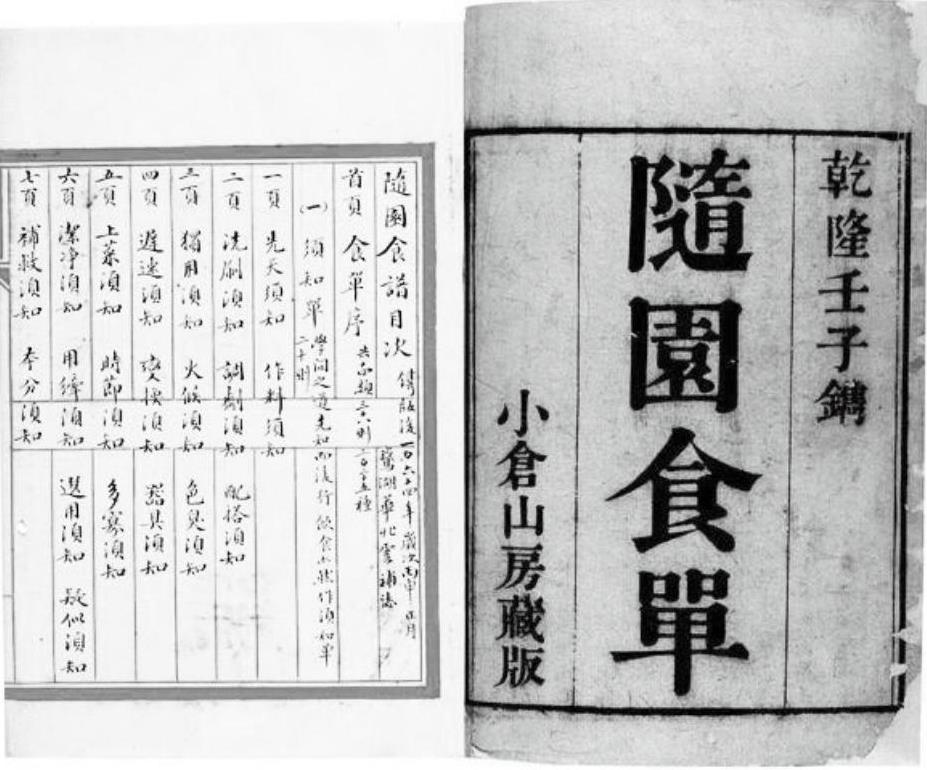 乾隆壬子鐫
隨園食單
小倉山房藏版
隨園食譜目次
首頁 食單序
(一) 須知單 二十則 學問之道先知而後行飲食亦然作須知單
一頁 先天須知 作料須知
二頁 洗刷須知 調劑須知 配搭須知
三頁 獨用須知 火候須知 色臭須知
四頁 遲速須知 變換須知 器具須知
五頁 上菜須知 時節須知 多寡須知
六頁 潔淨須知 用縴須知 選用須知 疑似須知
七頁 補救須知 本分須知